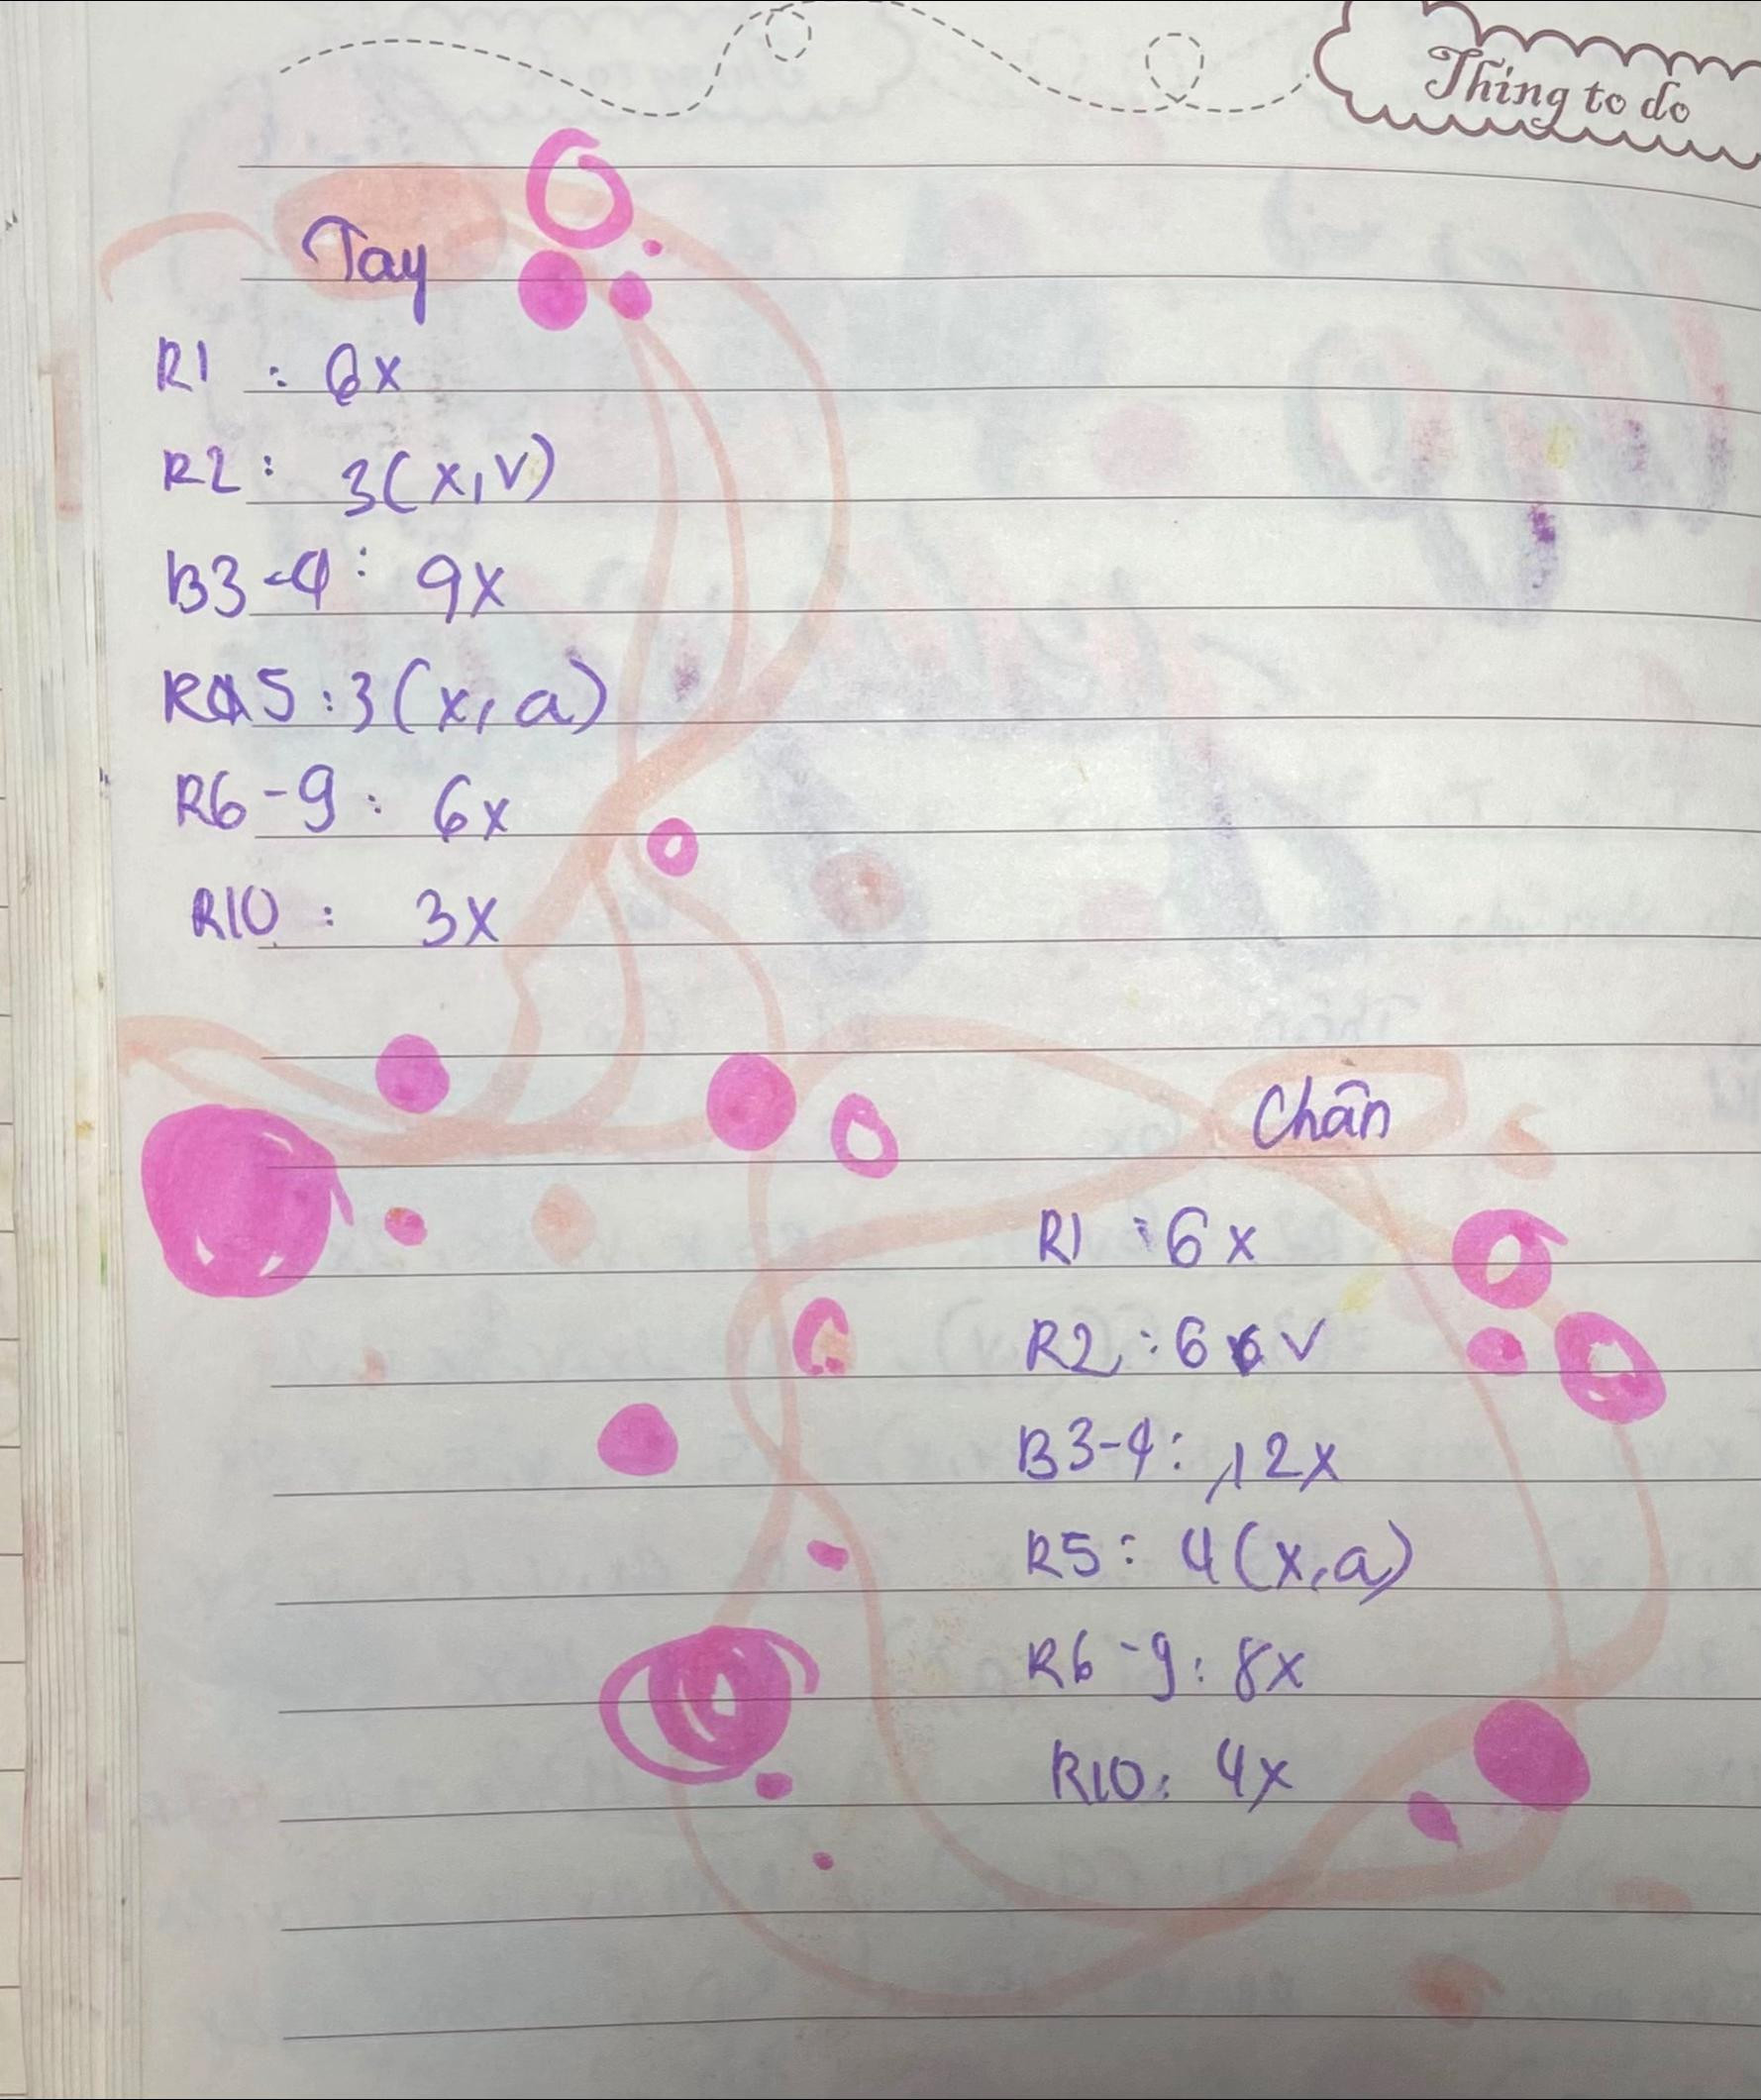 Thing to do
Tay
R1 : 6x
R2 : 3(x,v)
B3-4 : 9x
R5 : 3(x, a)
R6-9 : 6x
R10 : 3x
Chân
R1 : 6x
R2 : 6 v
B3-4 : 12x
R5 : 4(x,a)
R6-9 : 8x
R10 : 4x